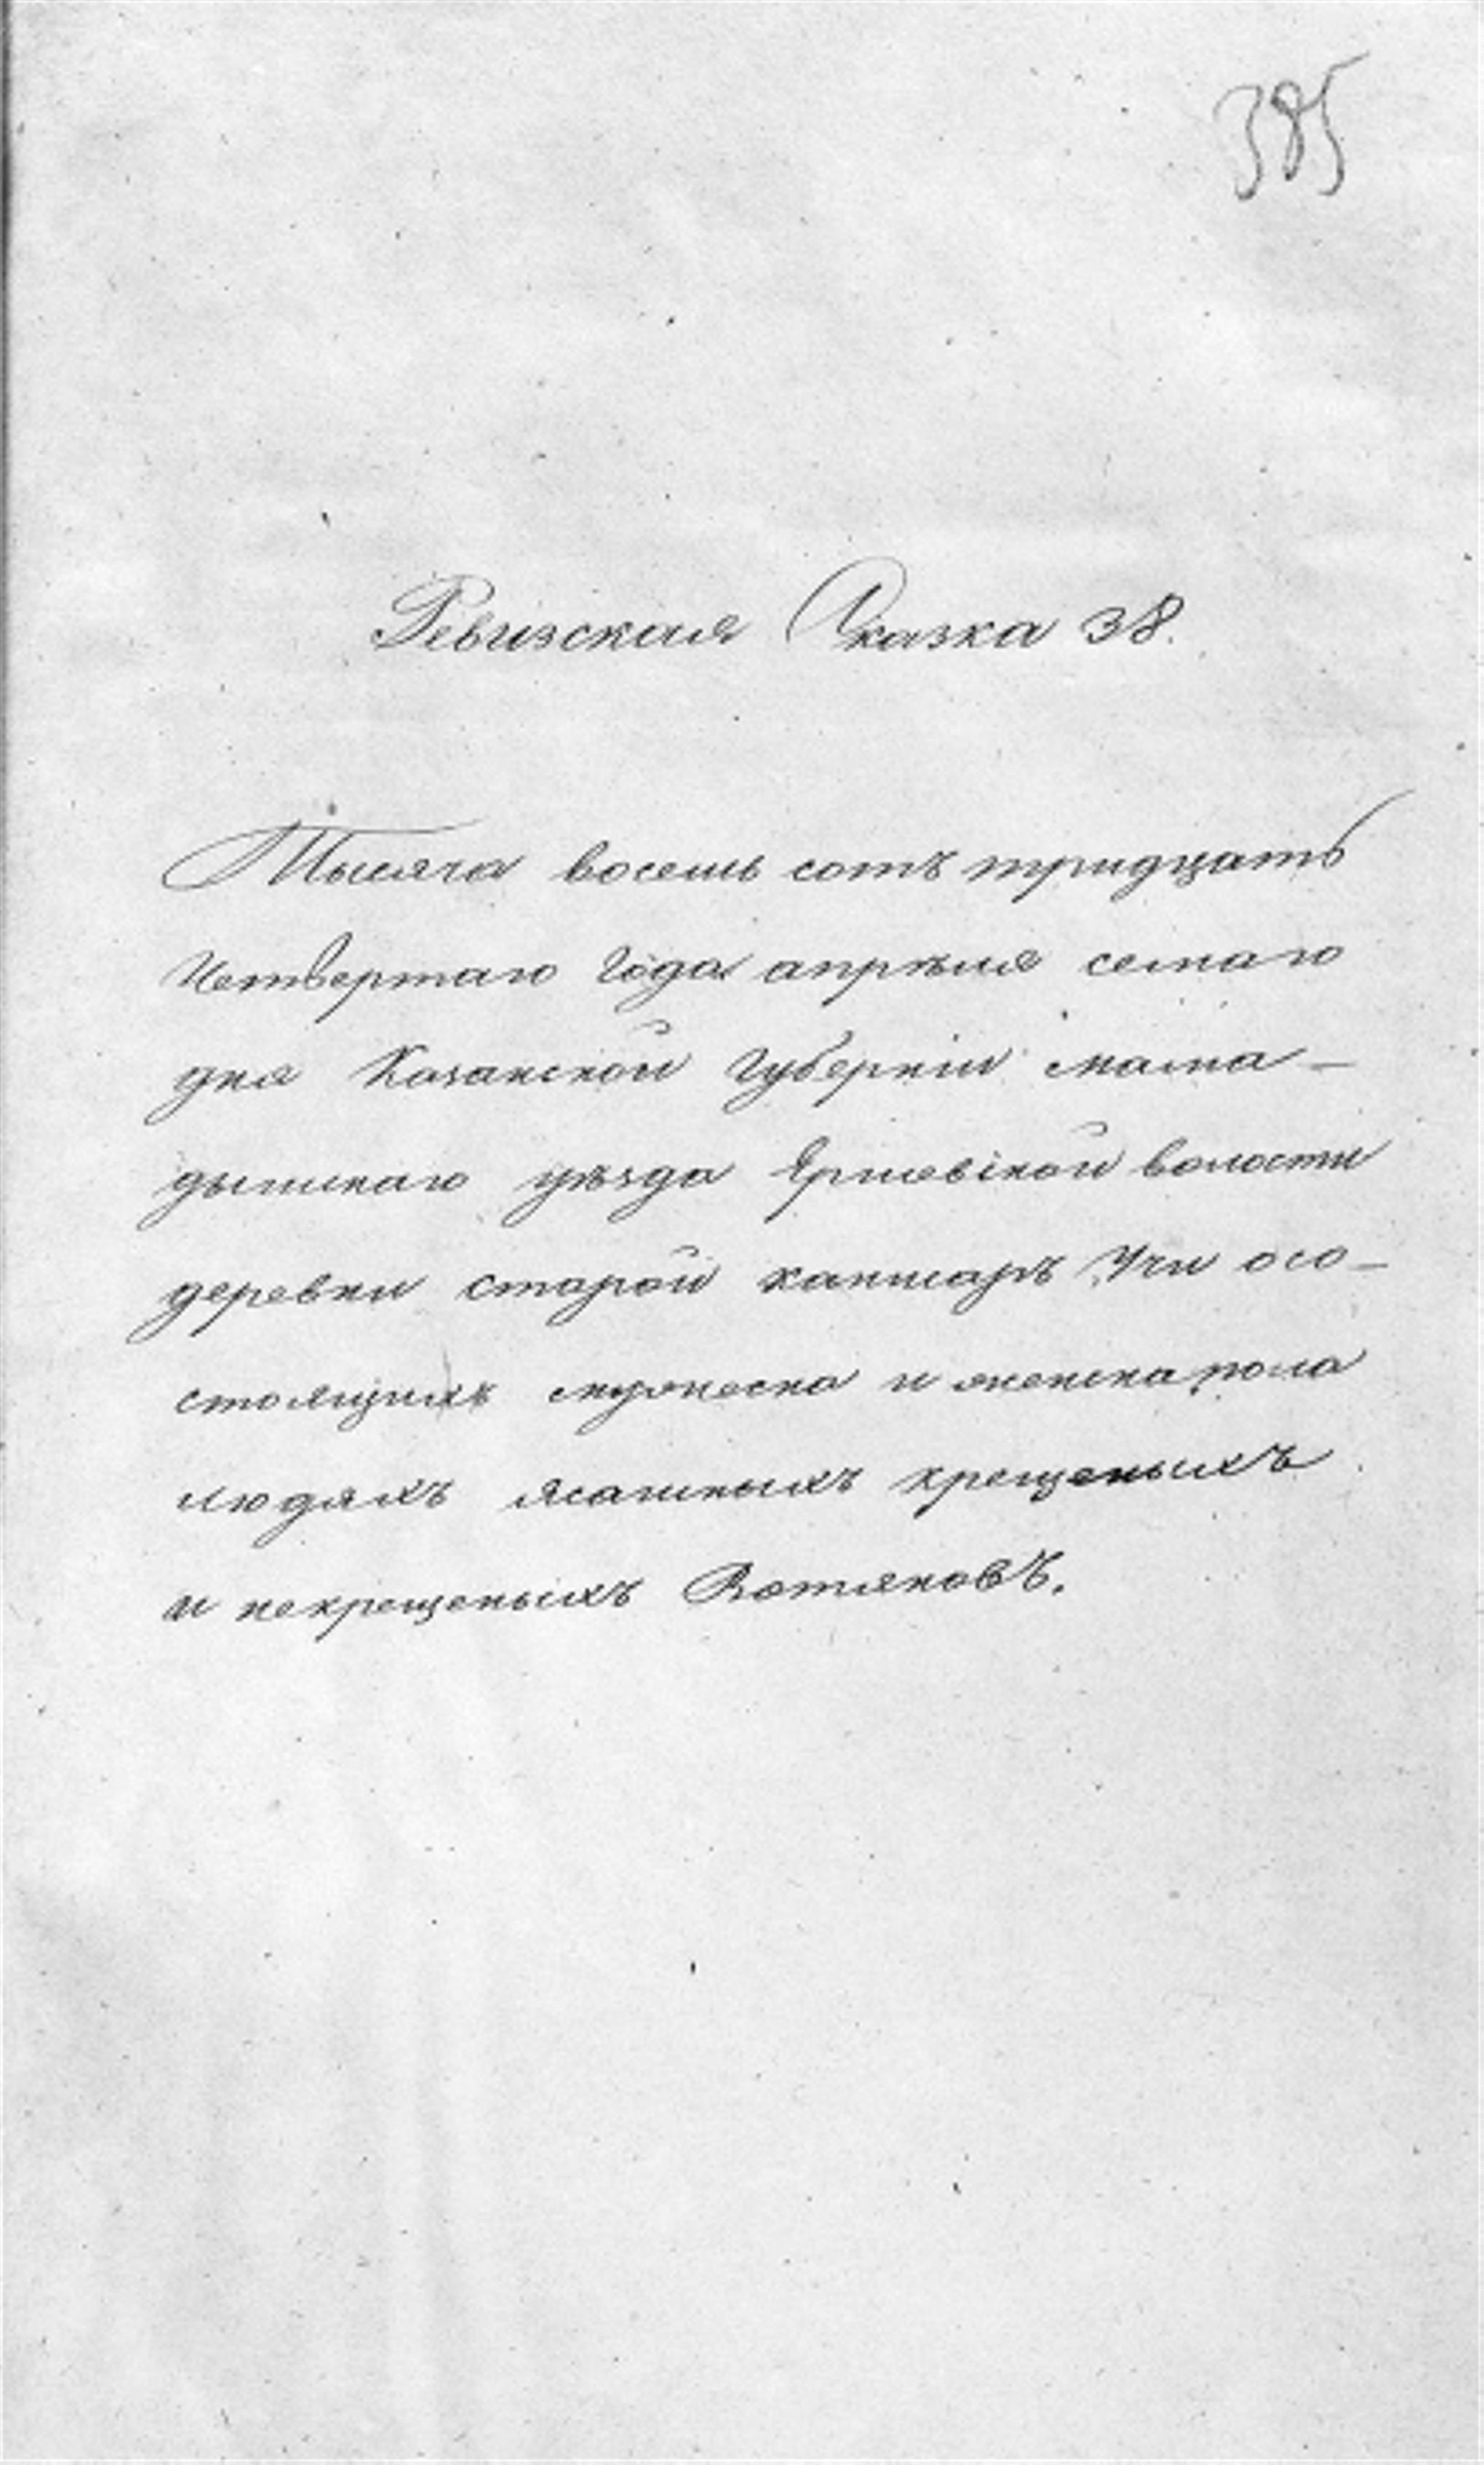 385
Ревизская Сказка 38.
Тысяча восемь сотъ тридцать
Четвертаго Года апрѣля семаго
дня Казанской Губерніи мама-
дышскаго уѣзда Ершовской волости
деревни старой канисаръ Учи осо-
стоящихъ мужеска и женска пола
людяхъ ясашныхъ крещеныхъ
и некрещеныхъ Вотяковъ.